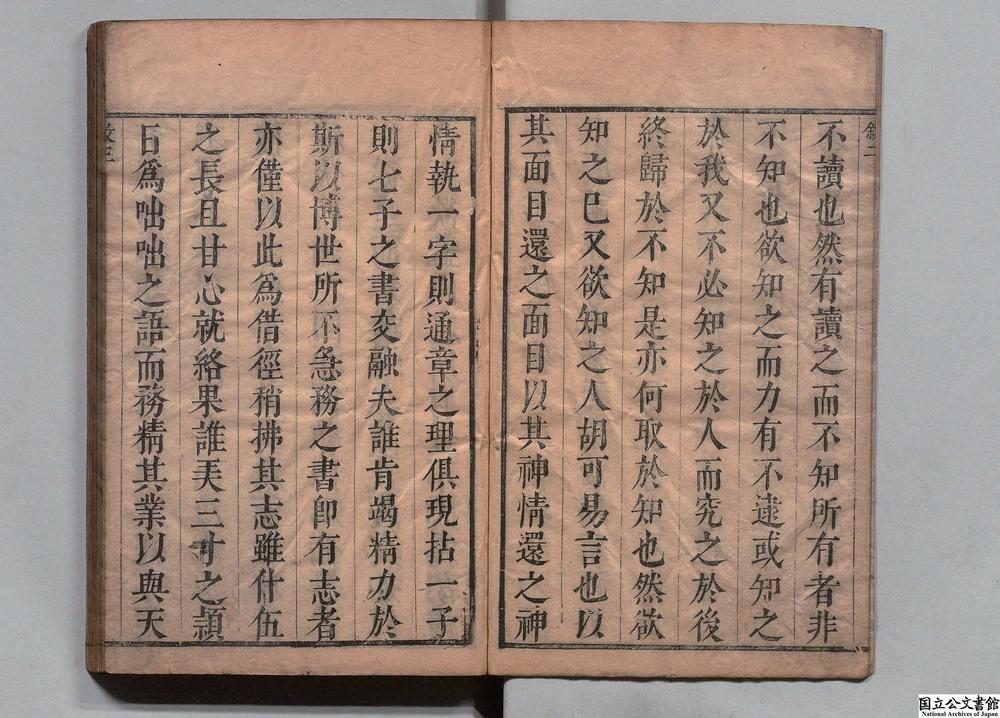 敘二
不讀也然有讀之而不知所有者非
不知也欲知之而力有不逮或知之
於我又不必知之於人而究之於後
終歸於不知是亦何取於知也然欲
知之已又欲知之人胡可易言也以
其面目還之面目以其神情還之神
情執一字則通章之理俱現拈一子
則七子之書交融夫誰肯竭精力於
斯以博世所不急務之書即有志者
亦僅以此爲借徑稍拂其志雖什伍
之長且甘心就絡果誰天三寸之頴
日爲咄咄之語而務精其業以與天
敘三
国立公文書館
National Archives of Japan